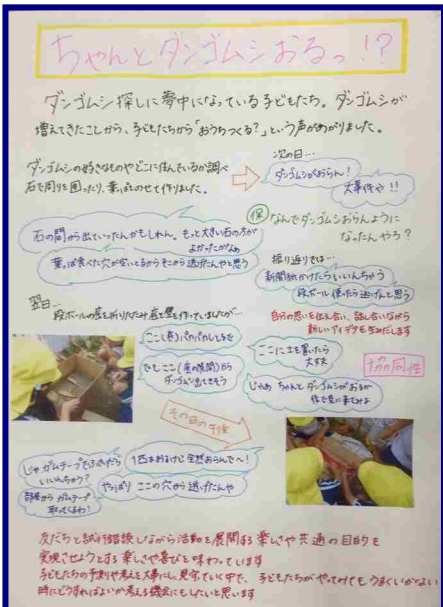 ちゃんとダンゴムシおるっ!?
ダンゴムシ探しに夢中になっている子どもたち。ダンゴムシが
増えてきたことから、子どもたちから「おうちつくる?」という声があがりました。
ダンゴムシの好きなものやどこに住んでいるか調べ
石で周りを囲ったり、葉っぱをのせて作りました。
次の日…
ダンゴムシがおらん!
大事件や!!
保 なんでダンゴムシおらんように
なったんやろ?
石の間から出ていったんかもしれん。もっと大きい石の方が
よかったかなぁ
葉っぱ食べた穴が空いとるからそこから逃げたんやと思う
振り返りでは…
新聞紙かけたらいいんちゃう
段ボール使ったら逃げんと思う
自分の思いを伝え合い、話し合いながら
新しいアイデアを生みだします
翌日…
段ボールの底を折りたたみ底と壁を作っていましたが…
ここ(巻)パカパカしてるで
でもここ(底の隙間)から
ダンゴムシ出てきそう
ここに土を置いたら
大丈夫
じゃあ ちゃんとダンゴムシがおるか
後で見に来てみよ
協同性
その日の午後
じゃあガムテープでふさいだら
いいんちゃう?
部屋からガムテープ
取ってくるわ!
1匹おるけど全然おらんでー!
やっぱりここの穴から逃げたんや
友だちと試行錯誤しながら活動を展開する楽しさや共通の目的を
実現させようとする楽しさや喜びを味わっています
子どもたちの予測や考えを大事にし、見守っていく中で、子どもたちがやってみてもうまくいかない
時にどうすればよいか考える機会にもしたいと思います